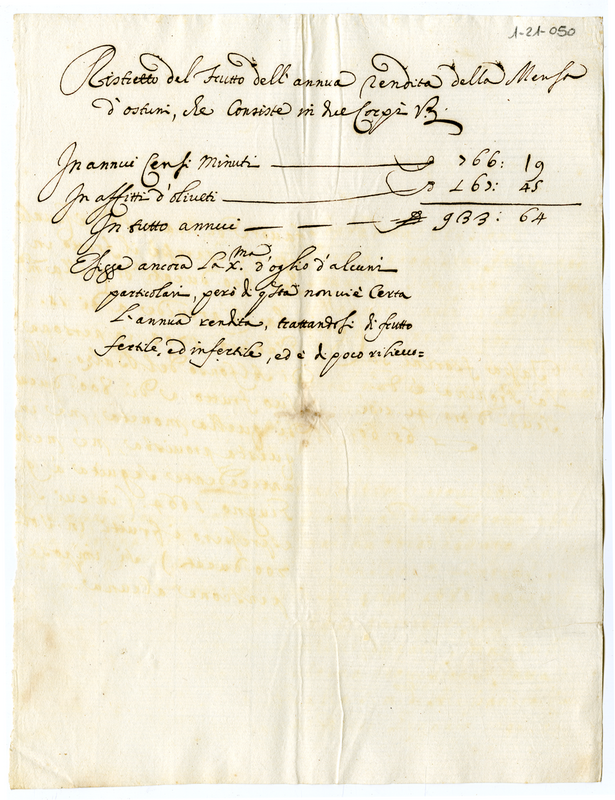 1-21-050
Ristretto del frutto dell'annua rendita della Mensa
d'ostuni, che Consiste in due Corpi Vz.
In annui Censi Minuti — D 766: 19
In affitti d'oliveti — D 167: 45
In tutto annui — — — D 933: 64
Esigge ancora La X.ma d'oglio d'alcuni
particolari, però di q̃sta non vi è Certa
L'annua rendita, trattandosi di frutto
fertile, ed infertile, ed è di poco rilievo=